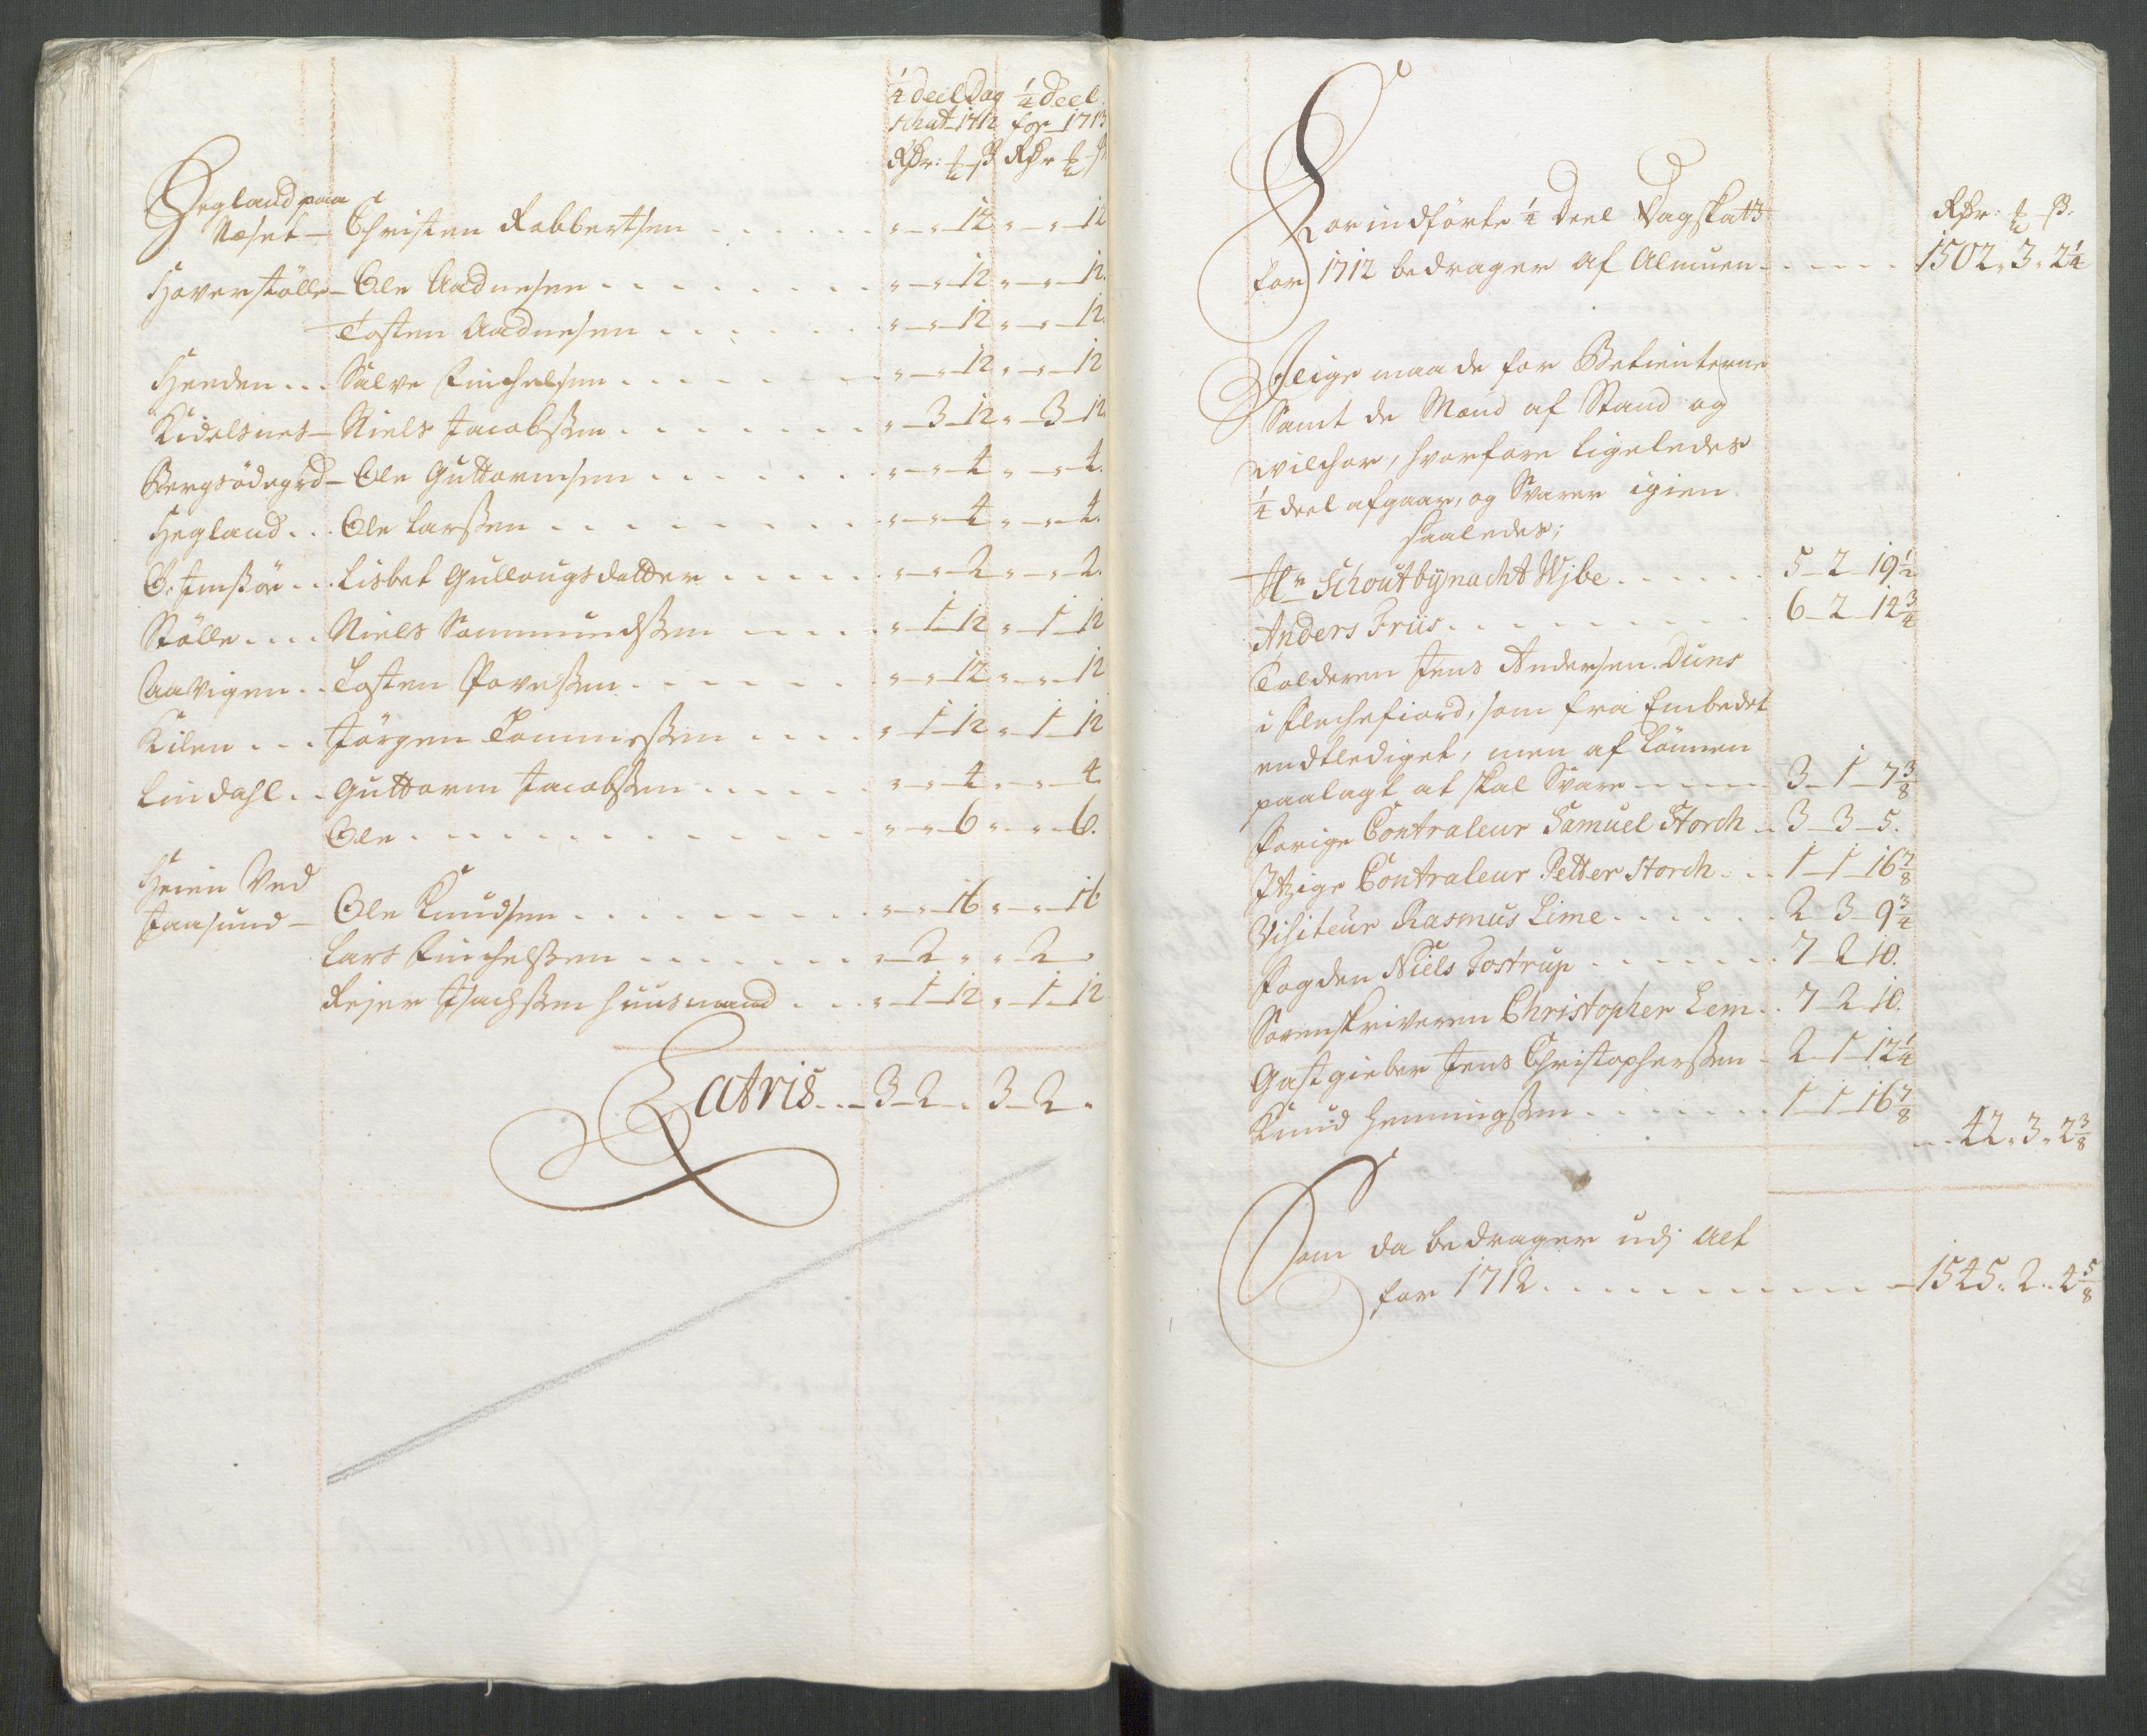 ¼ deel Dag ¼ deel
schat 1712 for 1713
Rdr: ß Rdr
Hegland paa
Næset – Christen Robbertsen . . . . . . „ – „ 12 „ – „ 12
Haverstølle – Ole Aadnesen . . . . . . . „ – „ 12 „ – „ 12.
Tosten Aadnesen . . . . . . „ – „ 12 „ – „ 12.
Heeden . . . Salve Eiuchelsen . . . . . . „ – „ 12 „ – „ 12
Kidelsnes – Niels Jacobssen . . . . . . . „ – 3 – 12 „ – 3 – 12
Bergsødegrd – Ole Guttormsen . . . . . . „ – „ 4 „ – „ 4.
Hegland . . . Ole Larssen . . . . . . . . „ – „ 4 „ – „ 4.
Lisbet Gullougsdatter . . . . . „ – „ 2 „ – „ 2.
Stølle . . . . Niels Sammundssen . . . . „ 1 12 „ – 1 12
Aavigen . . Tosten Povelssen . . . . . . „ – „ 12 „ – „ 12
Kilen . . . Jørgen Tommessen . . . . „ – 1 – 12 „ – 1 12
Lindahl . . Guttorm Jacobssen . . . . . „ – „ 4 „ – „ 4
Ole . . . . . . . . . . . „ – „ 6 „ – „ 6.
Heien Ved
Jaasund – Ole Knudsen . . . . . . . . „ – „ 16 „ – „ 16
Lars Eiuchelssen . . . . . . . „ 2 „ „ 2 „
Rejer Isachssen huusmand . . . „ – 1 12 „ – 1 – 12
Latris . . – 3 – 2 „ 3 – 2 „
Forindførte ¼ Deel Dagskatt Rdr: ß.
for 1712 bedrager af Almuen . . . . . 1502 „ 3 „ 2¼
I lige maade for Betienterne
Samt de Mænd af Stand og
vilchor, hvorfore ligeledes
¼ deel afgaar, og Svarer igien
saaledes;
Hr Schoutbynacht Wjbe . . . . . . 5 – 2 – 19½
Anders Friis . . . . . . . . . 6 – 2 – 14¾
Tolderen Jens Andersen Duns
i Flechefiord, som fra Embedet
endtlediget, men af Lønnen
paalagt at skal Svare . . . . 3 – 1 – 7⅜
Forige Contraleur Samuel Storch . . 3 – 3 – 5.
Itzige Contraleur Petter Storch . . . 1 – 1 – 16⅞
Visiteur Rasmus Lime . . . . . . 2 – 3 – 9¾
Fogden Niels Tostrup . . . . . . . 7 – 2 10.
Sorenskriveren Christopher Lem . . 7 – 2 – 10.
Gastgieber Jens Christopherssen – 2 – 1 – 12¼
Knud Henningssen . . . . . . . 1 – 1 – 16⅞
. . 42 „ 3 „ 2⅜
Som da bedrager udj Alt
for 1712 . . . . . . . . . . . – 1545 „ 2 „ 4⅝